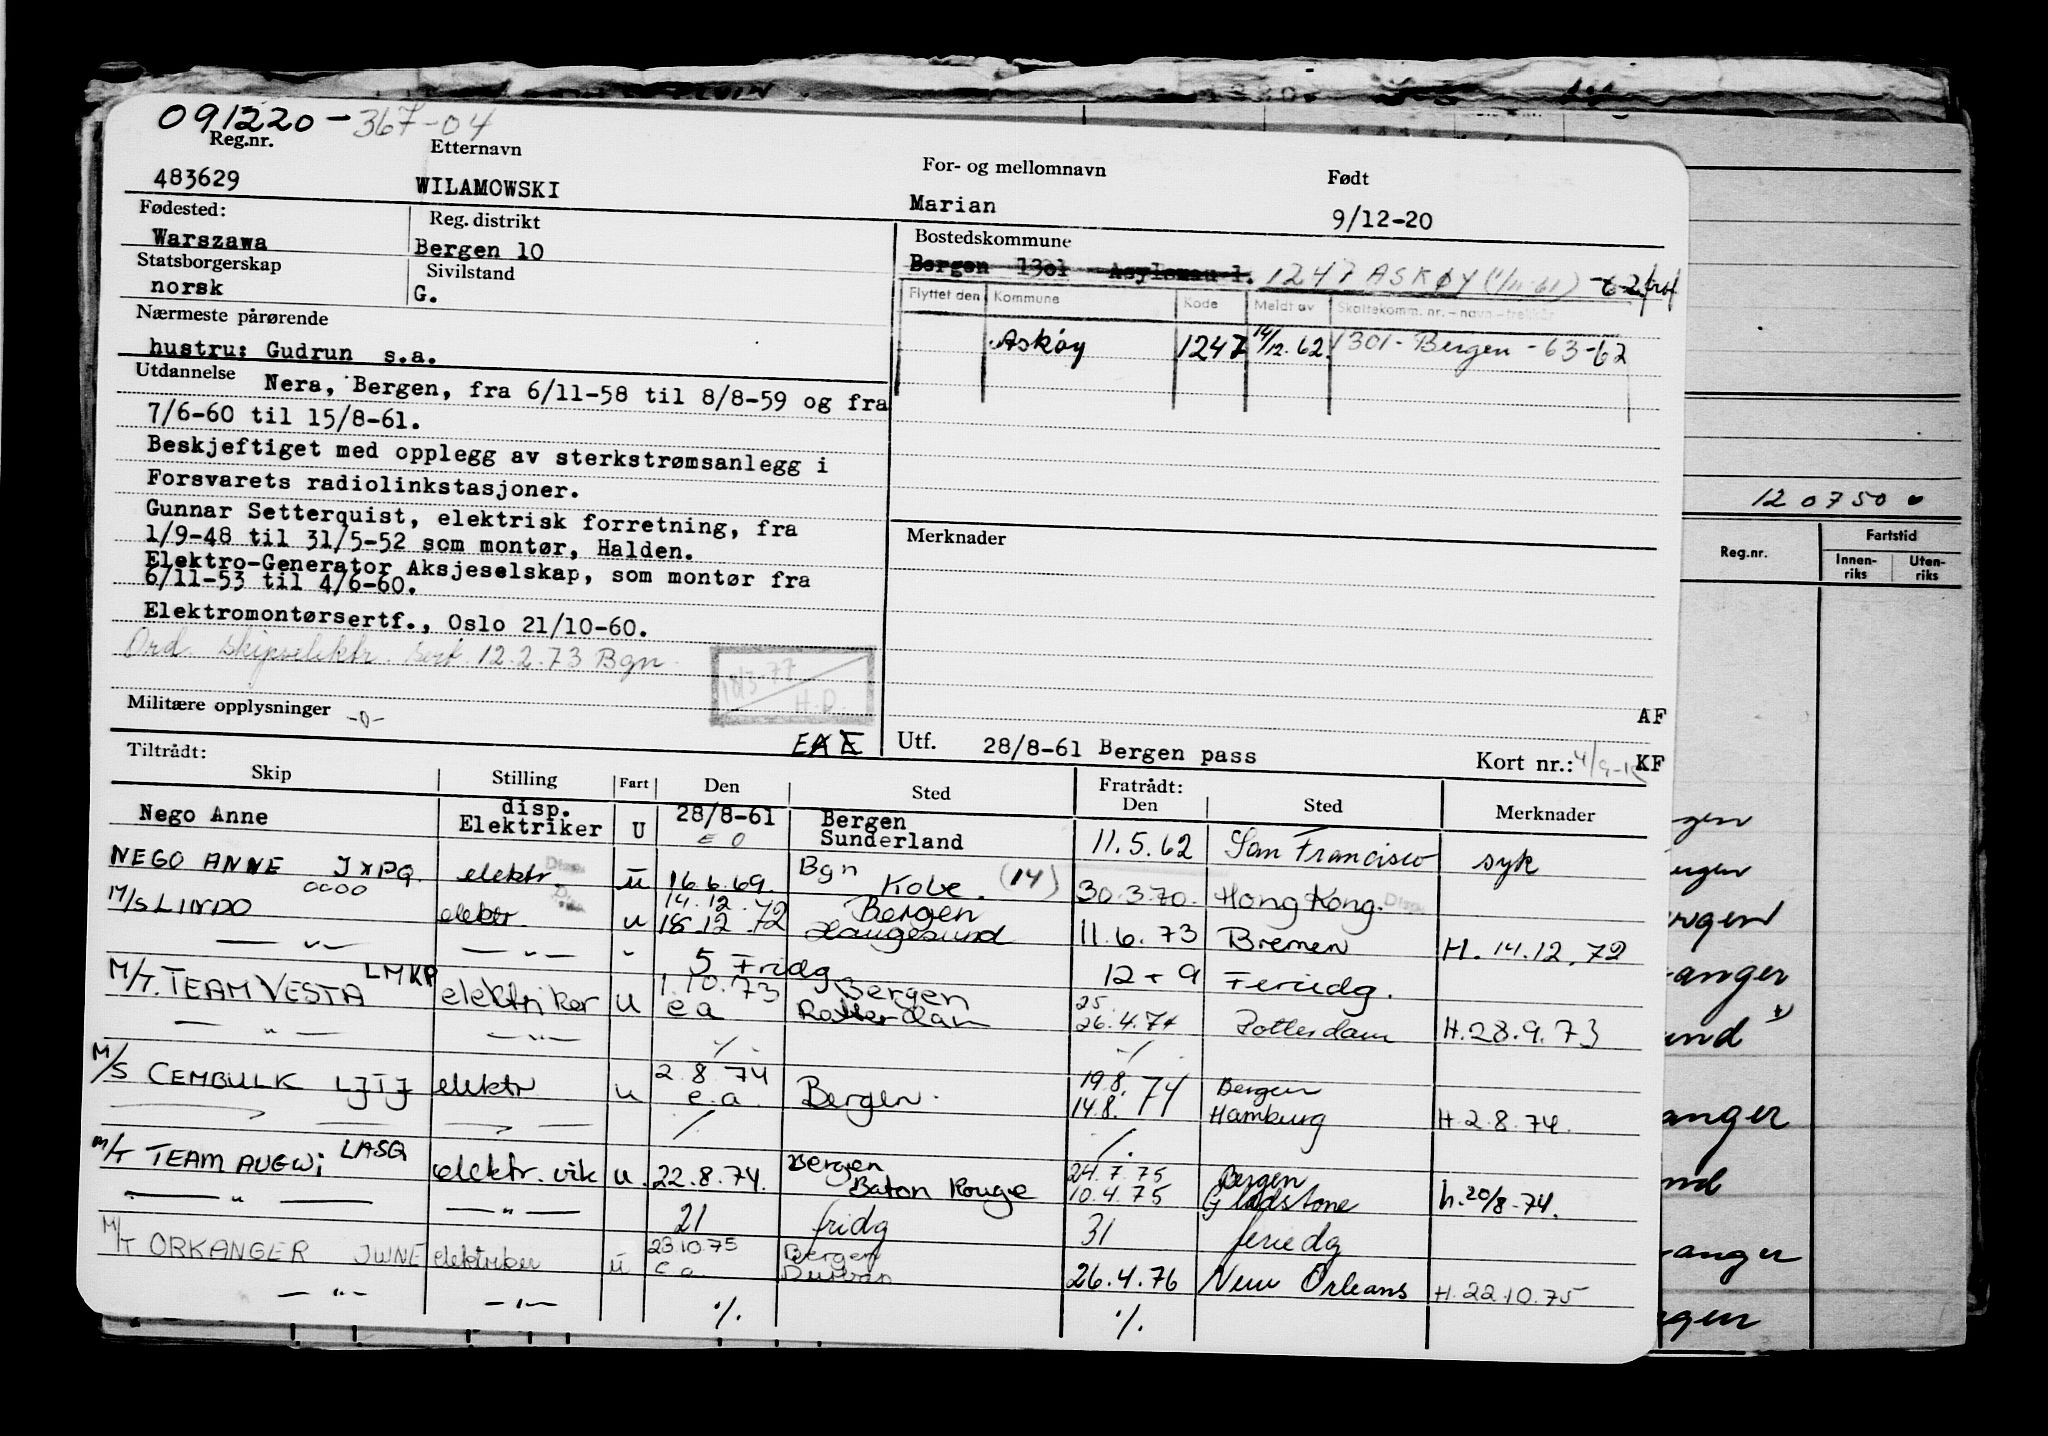 091220-367-04
Reg.nr. Etternavn For- og mellomnavn Født
483629 WILAMOWSKI Marian 9/12-20
Fødested: Reg. distrikt Bostedskommune
Warszawa Bergen 10 Bergen 1301 1247 ASKØY (1/11-61)
Statsborgerskap Sivilstand
norsk G.
Flyttet den Kommune Kode Meldt av Skattekomm. nr. - navn -
Askøy 1247 14/12.62 1301 - Bergen - 63-62
Nærmeste pårørende
hustru: Gudrun s.a.
Utdannelse Nera, Bergen, fra 6/11-58 til 8/8-59 og fra
7/6-60 til 15/8-61.
Beskjeftiget med opplegg av sterkstrømsanlegg i
Forsvarets radiolinkstasjoner.
Gunnar Setterquist, elektrisk forretning, fra
1/9-48 til 31/5-52 som montør, Halden.
Elektro-Generator Aksjeselskap, som montør fra
6/11-53 til 4/6-60.
Elektromontørsertf., Oslo 21/10-60.
Ord. skipselektr. sert. 12.2.73 Bgn.
18/3-77
H.D.
Militære opplysninger -0-
Merknader
AF
Utf. 28/8-61 Bergen pass Kort nr.: KF
Tiltrådt: Fratrådt:
Skip Stilling Fart Den Sted Den Sted Merknader
Nego Anne disp. Elektriker U 28/8-61 Bergen Sunderland 11.5.62 San Francisco syk
E O
NEGO ANNE JXPQ elektr ü 16.6.69. Bgn Kobe. (14) 30.3.70. Hong Kong.
0000
M/S LINDO elektr u 14.12. 18.12.72 Bergen Haugesund 11.6.73 Bremen H. 14.12.72
— " — — " — " 5 Fridg 12 + 9 Feriedg.
M/T. TEAM VESTA LMKP elektriker u 1.10.73 e a Bergen Rotterdam 25 26.4.74 Rotterdam H.28.9.73
— " — — " — ./. ./.
M/S CEMBULK LJIJ elektr u 2.8.74 e.a. Bergen. 19.8. 14.8.74 Bergen Hamburg H.2.8.74.
./. ./.
M/T TEAM AUGWI LASQ elektr. vik u. 22.8.74. Bergen Baton Rouge 24.7.75 10.4.75 Bergen Gladstone h.20/8-74.
— " — — " — 21 fridg 31 feriedg
M/T ORKANGER JWNE elektriker ü 23.10.75 e a Bergen Durban 26.4.76 New Orleans H.22.10.75
— " — — " — ./. ./.
120750
Reg.nr. Fartstid
Innen-riks Uten-riks